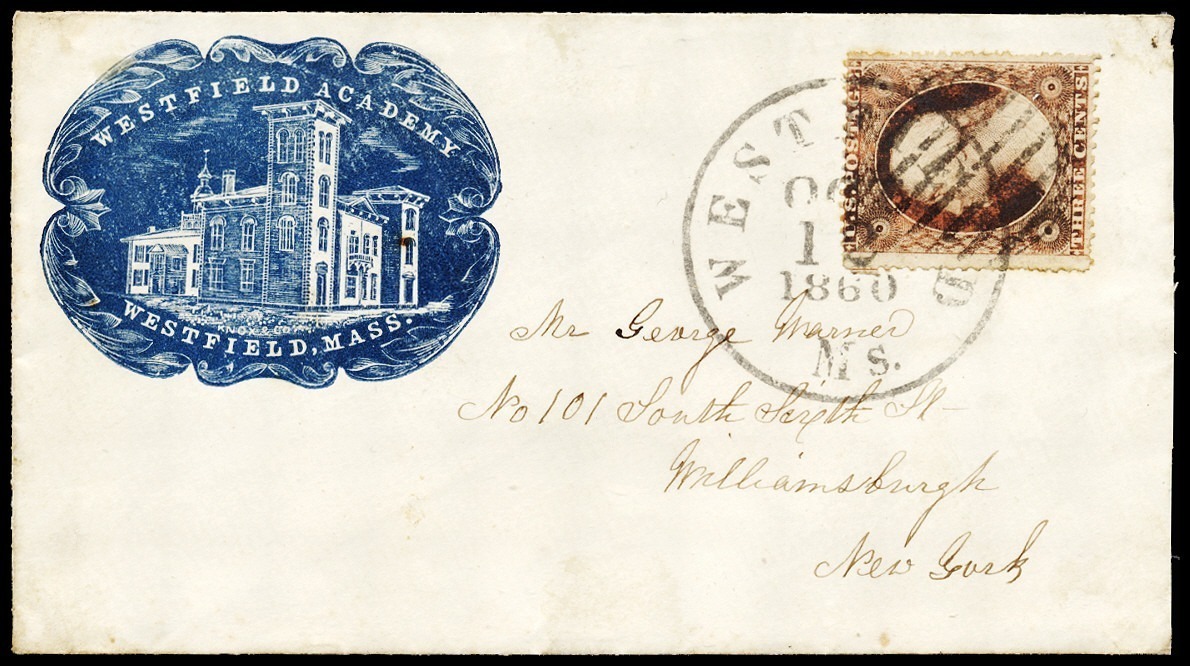 WESTFIELD ACADEMY
KNOX & CO
WESTFIELD, MASS.
U.S. POSTAGE
THREE CENTS
WEST D
OC
1
1860
Ms.
Mr George Warner
No 101 South Sixth St
Williamsburgh
New York